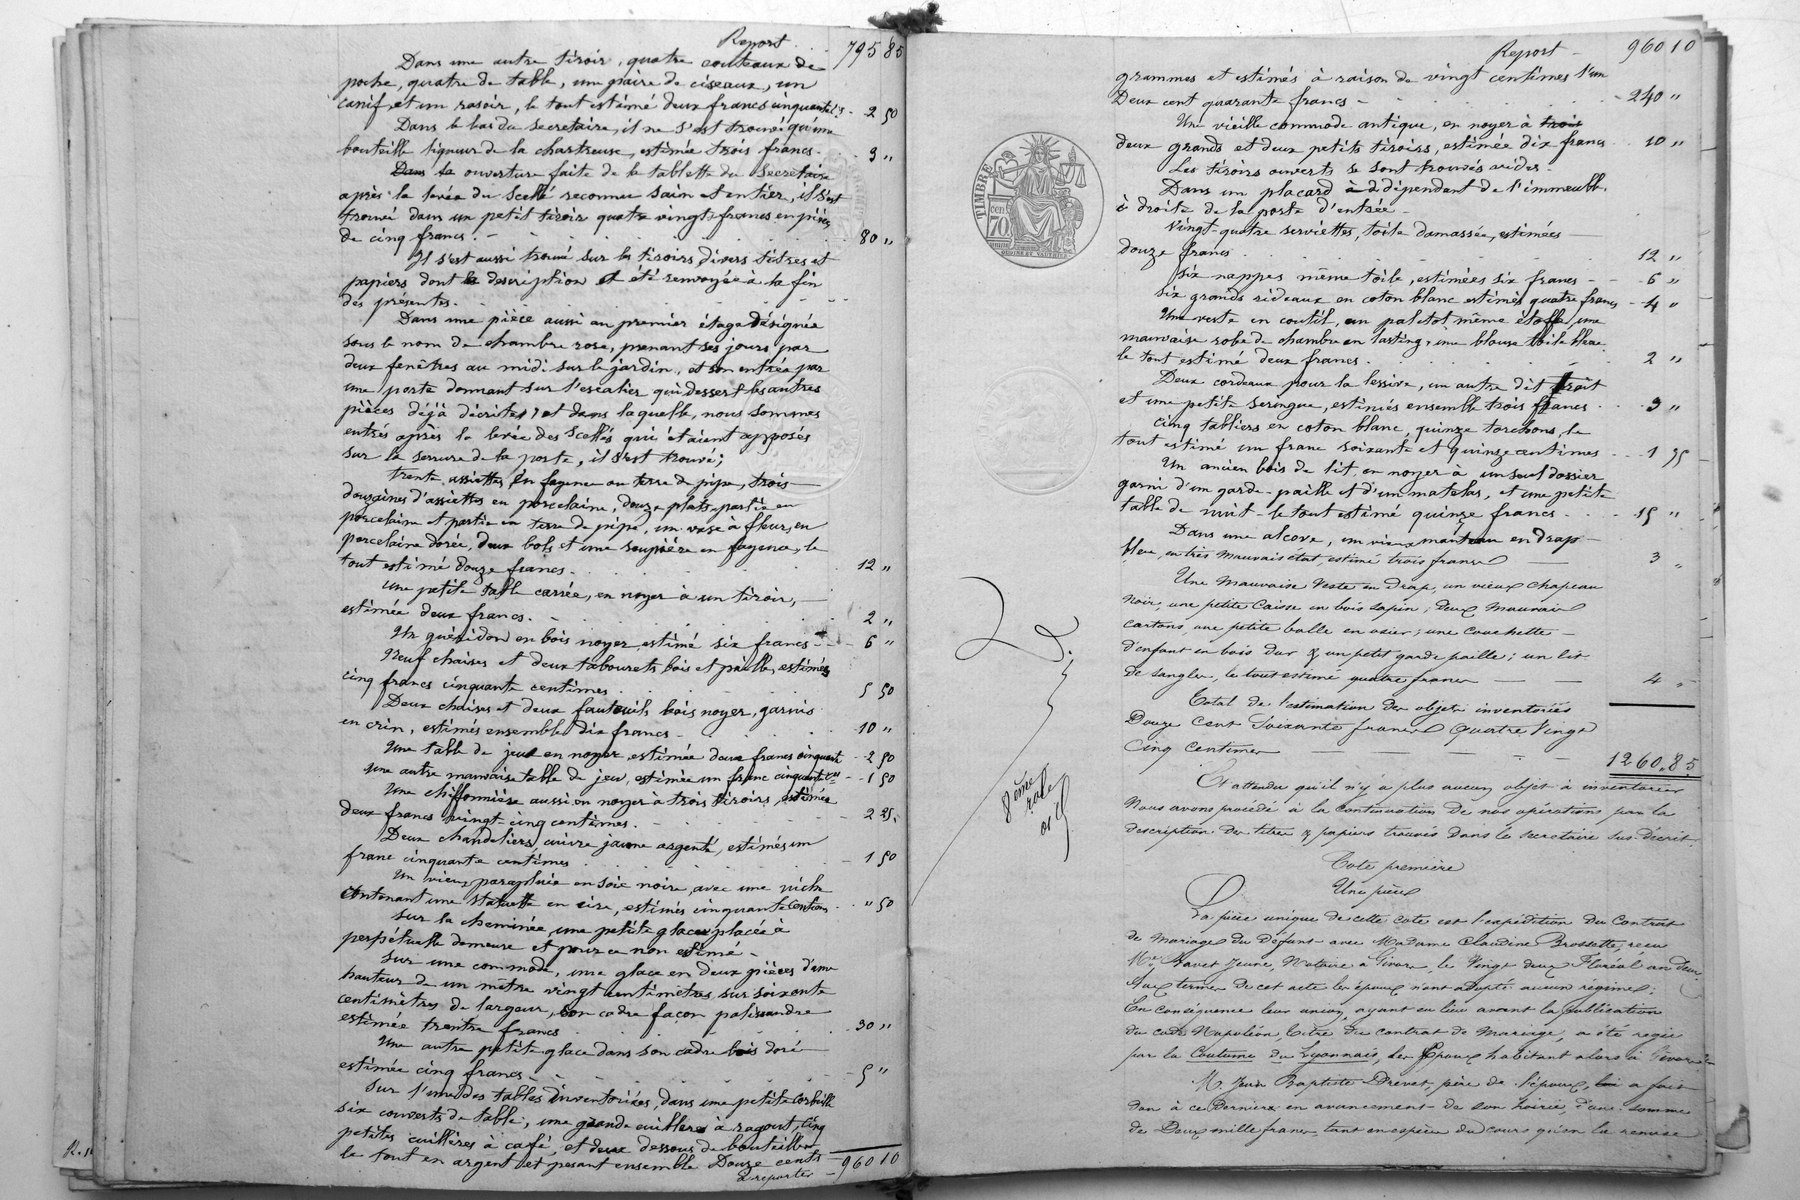 Report 795 85
Dans une autre tiroir, quatre couteaux de
poche, quatre de table, une paire de ciseaux, un
canif, et un rasoir, le tout estimé deux francs cinquante c. 2 50
Dans le bas du secretaire, il ne s'est trouvé qu'une
bouteille liqueur de la chartreuse, estimée trois francs. 3 "
Dans la ouverture faite de la tablette du secretaire
après la levée du scellé reconnu sain et entier, il s'est
trouvé dans un petit tiroir quatre vingts francs en pièces
de cinq francs. 80 "
Il s'est aussi trouvé sur les tiroirs, divers titres et
papiers dont la description et été renvoyée à la fin
des présentes.
Dans une pièce aussi au premier étage désignée
sous le nom de chambre rose, prenant ses jours par
deux fenêtres au midi sur le jardin, et son entrée par
une porte donnant sur l'escalier qui dessert les autres
pièces déjà décrites, et dans laquelle, nous sommes
entrés après la levée des scellés qui étaient apposés
sur la serrure de la porte, il s'est trouvé;
trente assiettes en fayence ou terre de pipe, trois
douzaines d'assiettes en porcelaine, douze plats, partie en
porcelaine et partie en terre de pipe, un vase à fleurs, en
porcelaine dorée, deux bols et une soupière en fayence, le
tout estimé douze francs. 12 "
une petite table carrée, en noyer à un tiroir,
estimée deux francs. 2 "
Un guéridon en bois noyer, estimé six francs 6 "
Neuf chaises et deux tabourets bois et paille, estimés
cinq francs cinquante centimes 5 50
Deux chaises et deux fauteuils bois noyer, garnis
en crin, estimés ensemble dix francs 10 "
Une table de jeu en noyer, estimée deux francs cinquant 2 50
Une autre mauvaise table de jeu, estimée un franc cinquante 1 50
Une chiffonnière aussi en noyer à trois tiroirs, estimée
deux francs vingt-cinq centimes. 2 25
Deux chandeliers, cuivre jaune argenté, estimés un
franc cinquante centimes 1 50
Un vieux parapluie en soie noire, avec une niche
contenant une statuette en cire, estimés cinquante centimes " 50
Sur la cheminée, une petite glace placée à
perpétuelle demeure et pour ce non estimé
Sur une commode, une glace en deux pièces d'une
hauteur de un mètre vingt centimètres, sur soixante
centimètres de largeur, son cadre façon palissandre
estimée trente francs 30 "
Une autre petite glace dans son cadre bois doré
estimée cinq francs 5 "
Sur l'une des tables inventoriées, dans une petite corbeille
six couverts de table, une grande cuillère à ragout, cinq
petites cuillères à café, et deux dessous de bouteilles
le tout en argent et pesant ensemble Douze cents
à reporter 960 10
Report 960 10
grammes et estimés à raison de vingt centimes l'un
Deux cent quarante francs 240 "
Une vieille commode antique, en noyer à trois
deux grands et deux petits tiroirs, estimée dix francs 10 "
Les tiroirs ouverts se sont trouvés vides.
Dans un placard à d dépendant de l'immeuble,
à droite de la porte d'entrée
Vingt-quatre serviettes, toile damassée, estimées
douze francs 12 "
Six nappes même toile, estimées six francs 6 "
six grands rideaux en coton blanc estimés quatre francs 4 "
Une veste en coutil, un paletot même étoffe, une
mauvaise robe de chambre en lasting, une blouse toile bleue
le tout estimé deux francs 2 "
Deux cordeaux pour la lessive, un autre dit trait
et une petite seringue, estimés ensemble trois francs 3 "
Cinq tabliers en coton blanc, quinze torchons, le
tout estimé un franc soixante et quinze centimes 1 75
Un ancien bois de lit, en noyer à un seul dossier
garni d'un garde-paille et d'un matelas, et une petite
table de nuit - le tout estimé quinze francs 15 "
Dans une alcove, un vieux manteau en drap
bleu, en très mauvais état, estimé trois francs 3 "
Une mauvaise veste en drap, un vieux chapeau
noir, une petite caisse en bois sapin, deux mauvais
cartons, une petite balle en osier; une couchette
d'enfant en bois dur & un petit garde paille; un lit
de sangler, le tout estimé quatre francs 4 "
Total de l'estimation des objets inventoriés
Douze cent soixante francs quatre vingt
cinq centimes 1260.85
Et attendu qu'il n'y a plus aucun objet à inventorier
Nous avons procédé à la continuation de nos opérations par la
description des titres & papiers trouvés dans le secretaire sus-décrit.
Cote première
Une pièce
La pièce unique de cette cote est l'expédition du contrat
de mariage du défunt avec Madame Claudine Brossette, reçu
Me Ravet jeune, Notaire à Givors, le vingt deux Floréal an deux
Aux termes de cet acte les époux n'ont adopté aucun régime;
En conséquence leur union, ayant eu lieu avant la publication
du code Napoléon, titre du contrat de mariage, a été régie
par la Coutume du Lyonnais, les Epoux habitant alors à Givors
M. Jean Baptiste Drevet, père de l'époux, lui a fait
don à ce dernier en avancement de son hoirie, d'une somme
de Deux mille francs, tant en espèces du cours qu'en la remise
TIMBRE
70
8ème
role